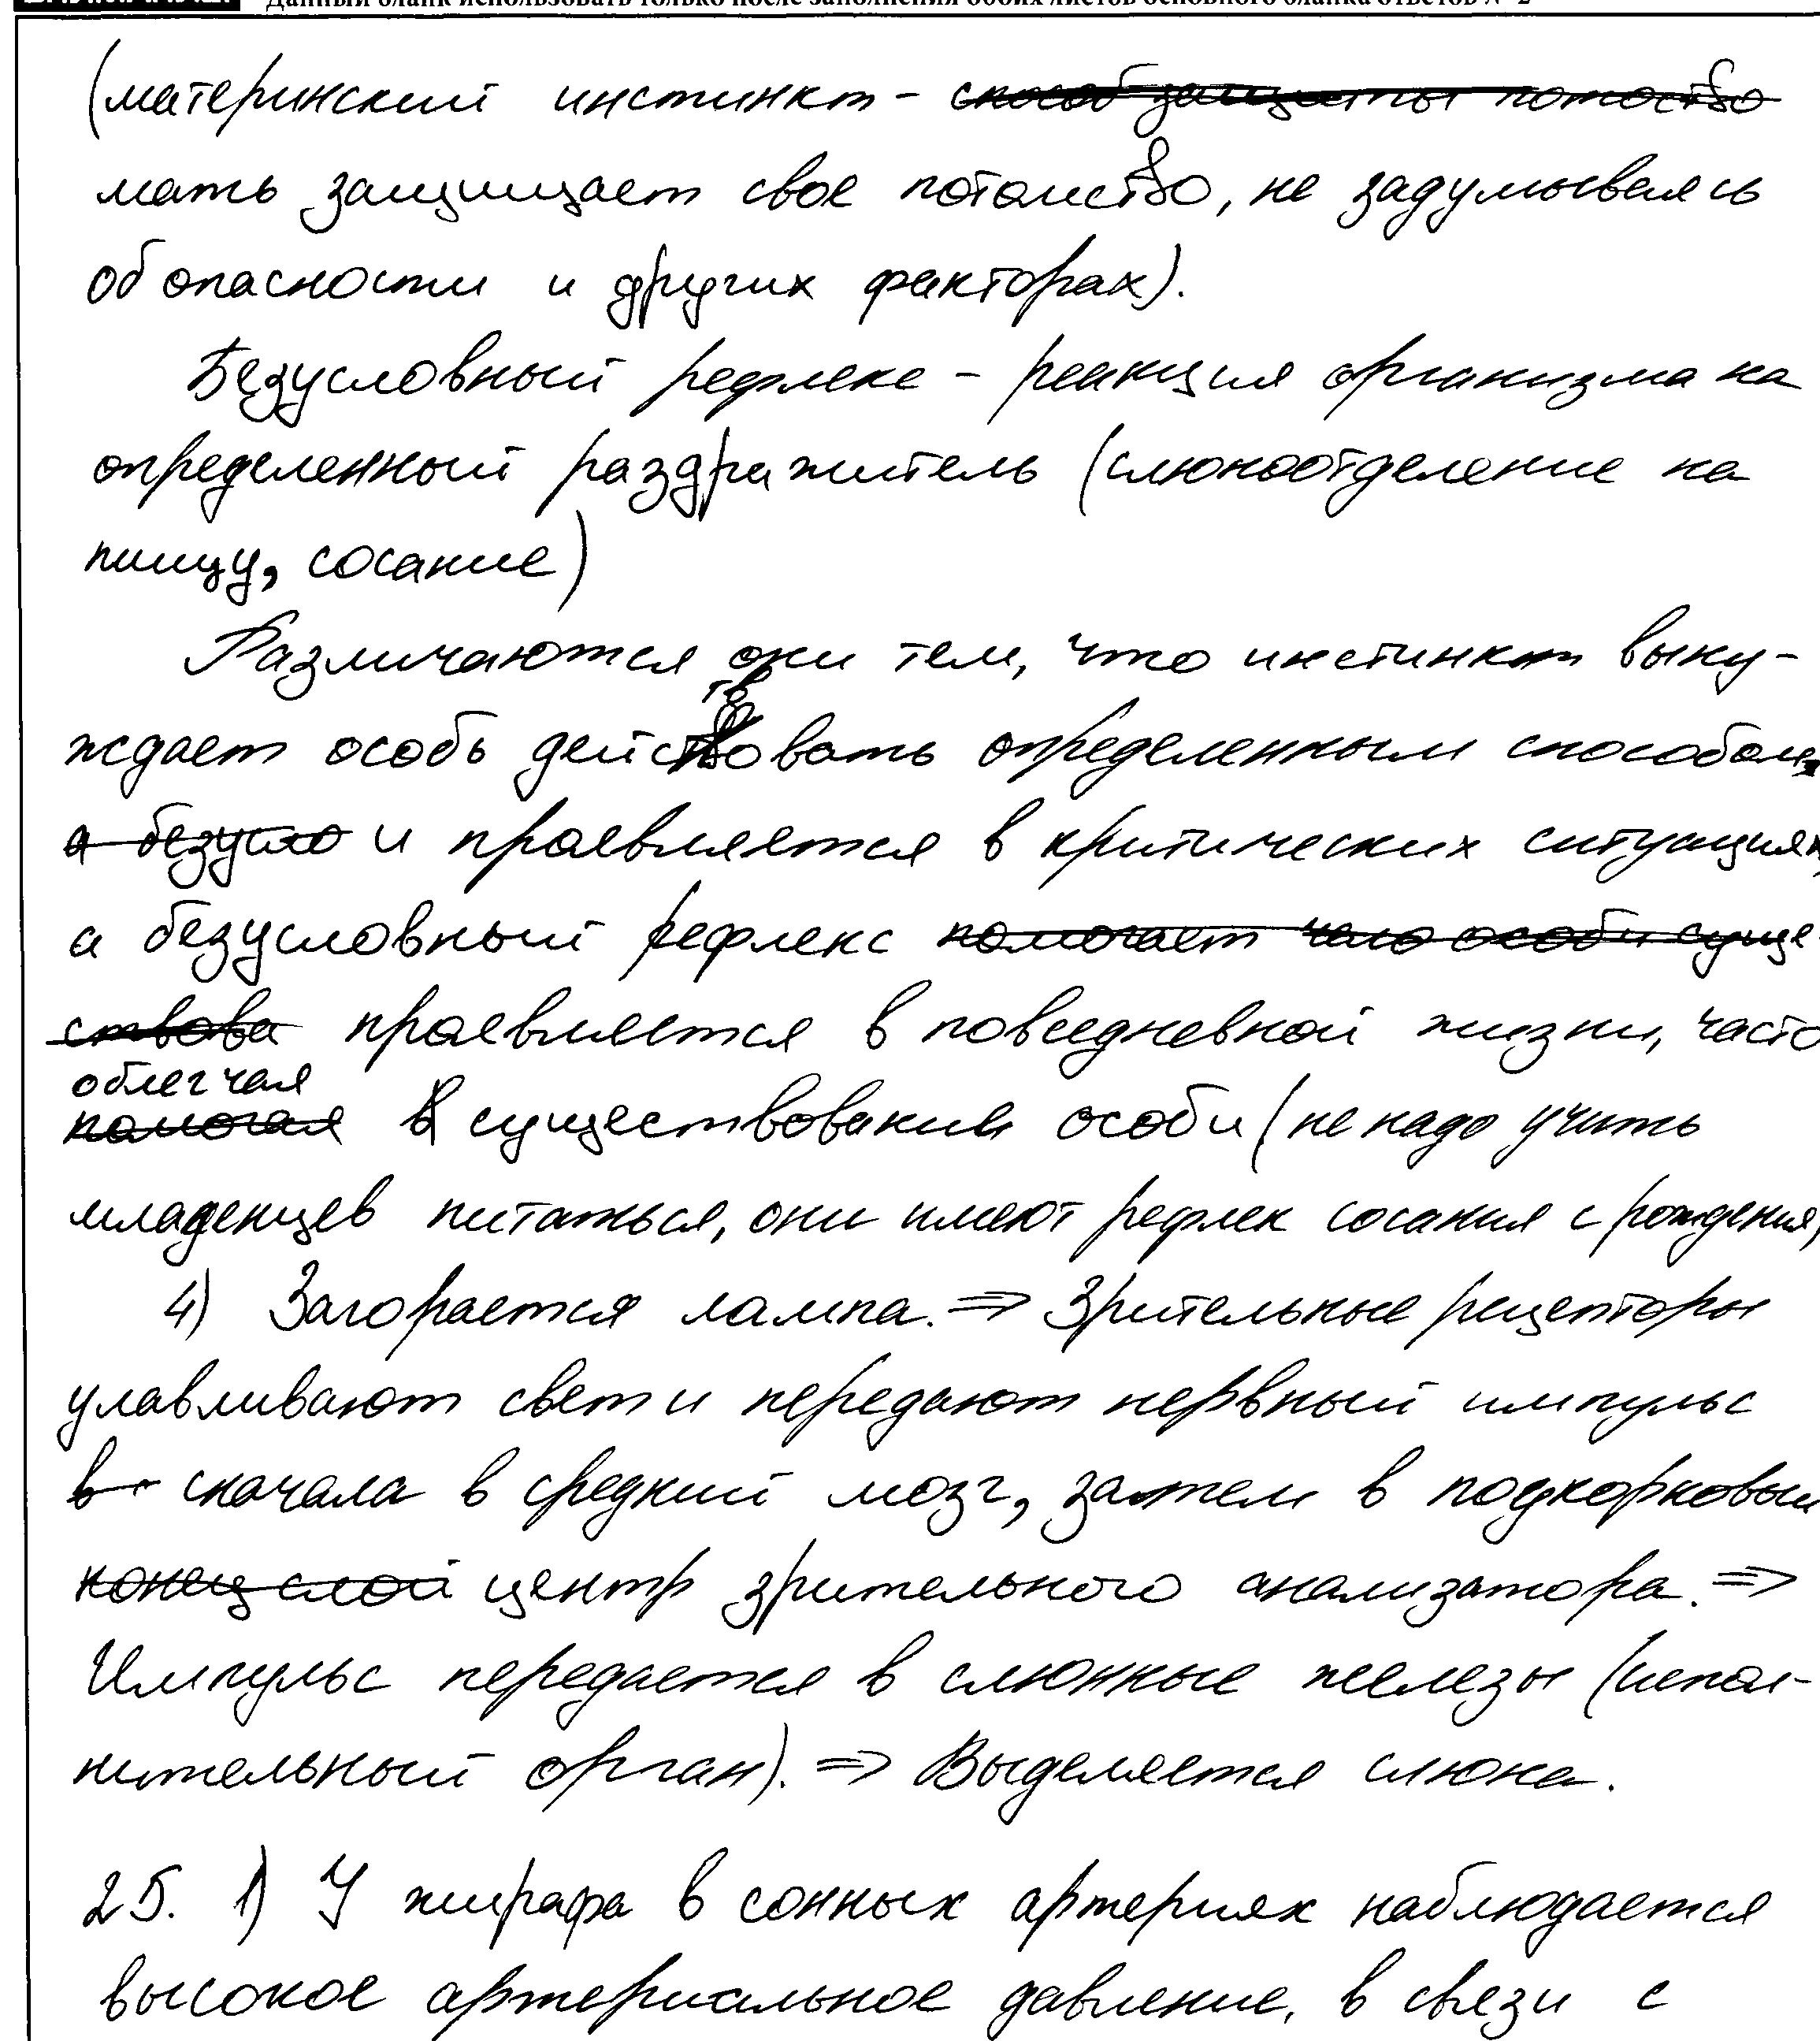 Данный бланк использовать только после заполнения обоих листов основного бланка ответов № 2
(материнский инстинкт - способ защиты потоство
мать защищает свое потомство, не задумываясь
об опасности и других факторах).
Безусловный рефлекс - реакция организма на
определенный раздражитель (слюноотделение на
пищу, сосание)
Различаются они тем, что инстинкт выну-
ждает особь действовать определенным способом,
а безусло и проявляется в критических ситуациях,
а безусловный рефлекс помогает чело особи суще-
ствова проявляется в повседневной жизни, часто
облегчая
помогая в существовании особи (не надо учить
младенцев питаться, они имеют рефлек сосания с рождения)
4) Загорается лампа. => Зрительные рецепторы
улавливают свет и передают нервный импульс
в сначала в средний мозг, затем в подкорковый
конец слой центр зрительного анализатора. =>
Импульс передается в слюнные железы (испол-
нительный орган). => Выделяется слюна.
25. 1) У жирафа в сонных артериях наблюдается
высокое артериальное давление, в связи с